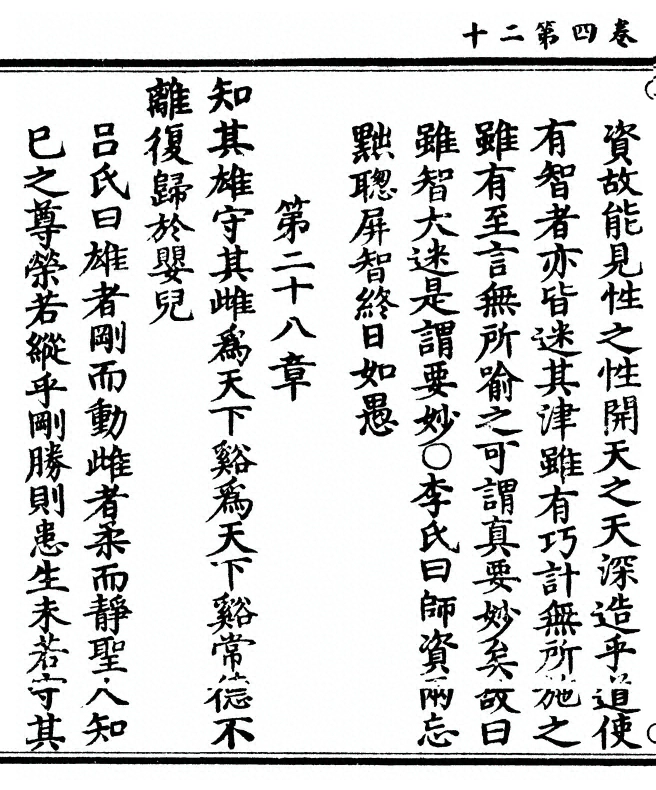 卷四第二十
資故能見性之性開天之天深造乎道使
有智者亦皆迷其津雖有巧計無所施之
雖有至言無所喻之可謂真要妙矣故曰
雖智大迷是謂要妙○李氏曰師資兩忘
黜聰屏智終日如愚
第二十八章
知其雄守其雌爲天下谿爲天下谿常德不
離復歸於嬰兒
吕氏曰雄者剛而動雌者柔而靜聖人知
巳之尊榮若縱乎剛勝則患生未若守其